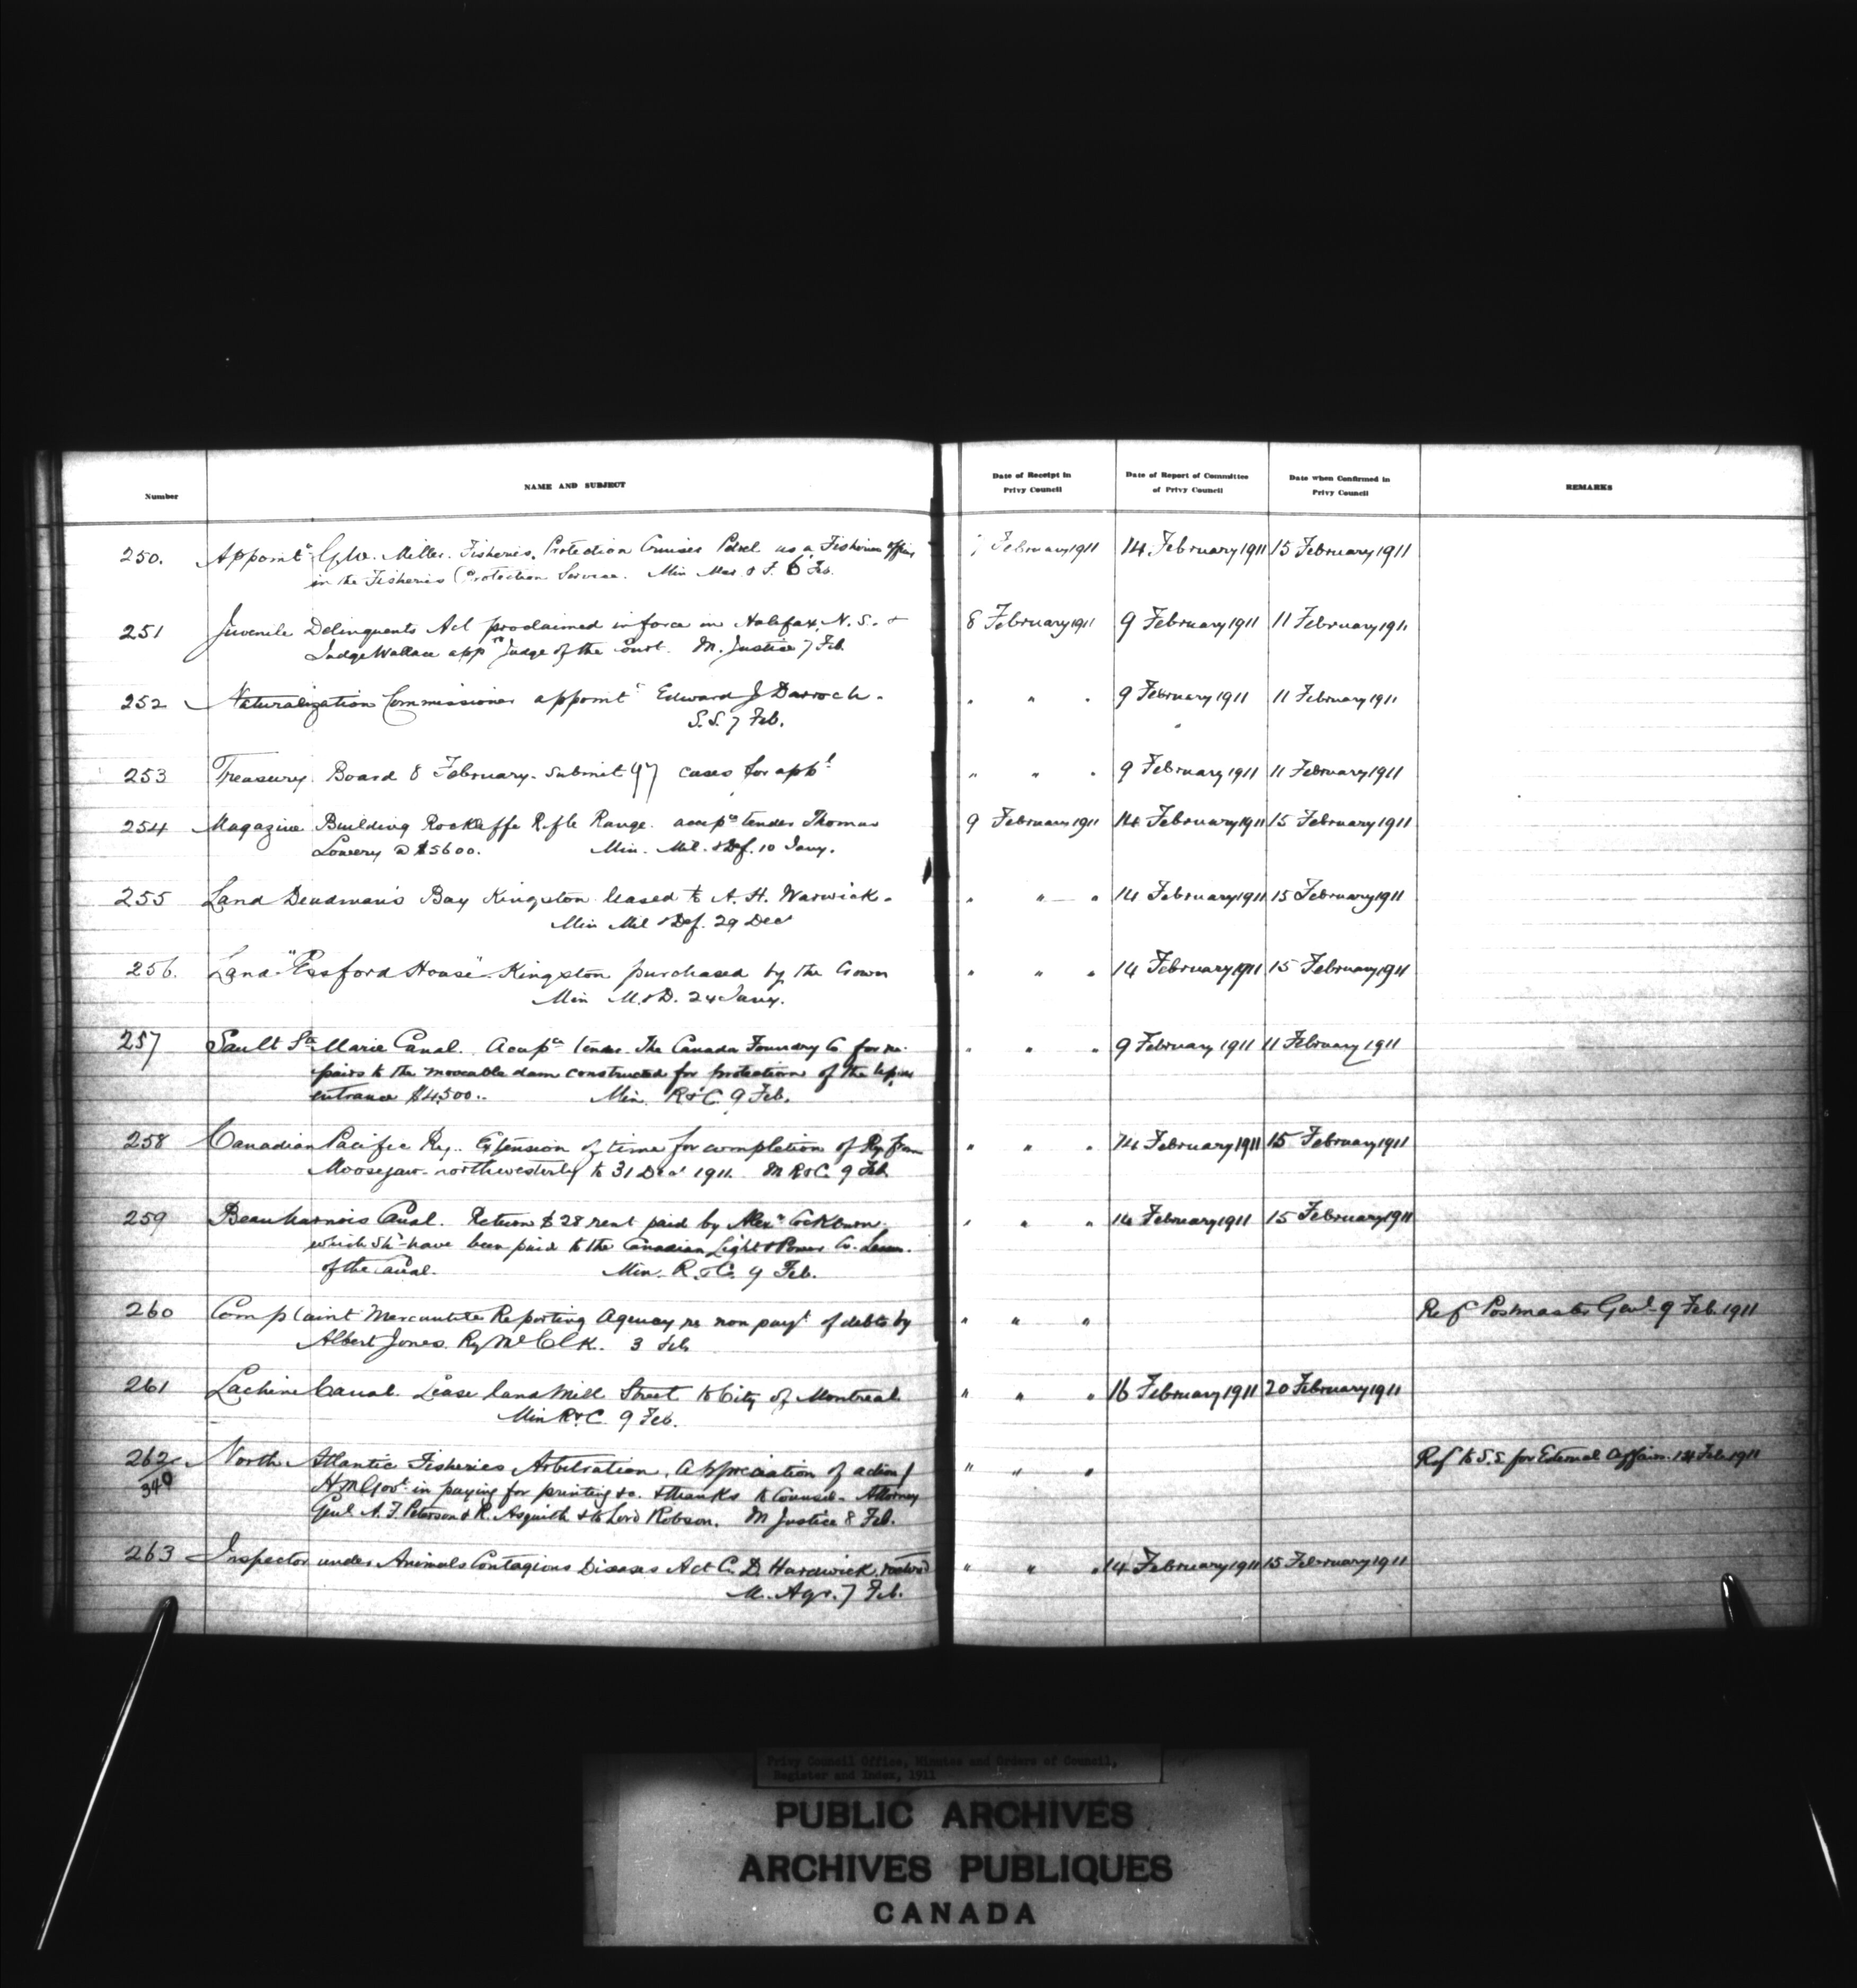 Number
NAME AND SUBJECT
Date of Receipt in
Privy Council
Date of Report of Committee
of Privy Council
Date when Confirmed in
Privy Council
REMARKS
250. Appoint G.W. Miller. Fisheries Protection Cruiser Petrel as a Fisheries officer 7 February 1911 14 February 1911 15 February 1911
in the Fisheries Protection Service. Min Mar & F. 6 Feb.
251 Juvenile Delinquents Act proclaimed in force in Halifax, N.S. & 8 February 1911 9 February 1911 11 February 1911
Judge Wallace app Judge of the Court. M. Justice 7 Feb.
252 Naturalization Commissioner appoint Edward J Darroch. " " " 9 February 1911 11 February 1911
S.S. 7 Feb.
253 Treasury Board 8 February. submit 97 cases for app " " " 9 February 1911 11 February 1911
254 Magazine Building Rockliffe Rifle Range. accep tender Thomas 9 February 1911 14 February 1911 15 February 1911
Lowery @ $5600. Min. Mil. & Def. 10 Jany.
255 Land Deadman's Bay Kingston leased to A. H. Warwick. " " " 14 February 1911 15 February 1911
Min Mil & Def. 29 Dec
256. Land "Essford House" Kingston purchased by the Crown " " " 14 February 1911 15 February 1911
Min M. & D. 24 Jany.
257 Sault Ste Marie Canal. Accep tender The Canada Foundry Co. for re- " " " 9 February 1911 11 February 1911
pairs to the moveable dam constructed for protection of the upper
entrance $4,500.. Min. R & C 9 Feb.
258 Canadian Pacific Ry. Extension of time for completion of Ry from " " " 14 February 1911 15 February 1911
Moosejaw northwesterly to 31 Dec 1911. M R & C. 9 Feb
259 Beauharnois Canal. Return $28 rent paid by Alex Cockburn " " " 14 February 1911 15 February 1911
which shd have been paid to the Canadian Light & Power Co. Lessee.
of the Canal. Min. R. & C. 9 Feb.
260 Complaint Mercantile Reporting Agency re non pay of debts by " " " Ref Postmaster Genl 9 Feb. 1911
Albert Jones Ry Ml Clk. 3 Feb
261 Lachine Canal. Lease land Mill Street to City of Montreal " " " 16 February 1911 20 February 1911
Min R & C. 9 Feb.
262 North Atlantic Fisheries Arbitration. Appreciation of action of " " " Ref to S.S. for External Affairs. 14 Feb. 1911
340 H M Govt in paying for printing &c. & thanks to Counsel- Attorney
Genl A. F. Peterson & R. Asquith & to Lord Robson. M Justice 8 Feb.
263 Inspector under Animals Contagious Diseases Act C. D. Hardwick " " " 14 February 1911 15 February 1911
M. Agr. 7 Feb.
Privy Council Office, Minutes and Orders of Council,
Register and Index, 1911
PUBLIC ARCHIVES
ARCHIVES PUBLIQUES
CANADA